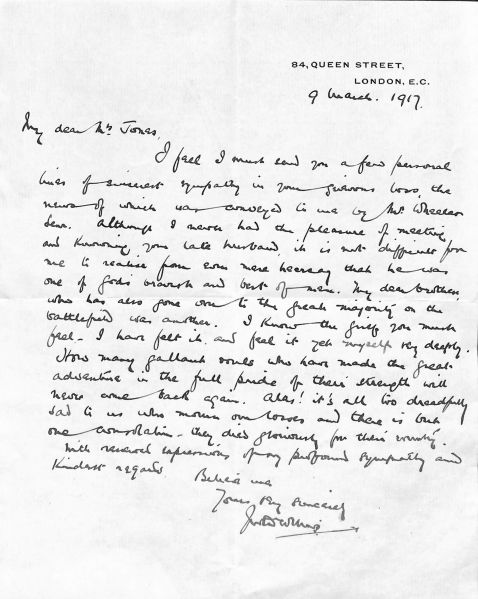 84, QUEEN STREET,
LONDON, E.C.
9 March. 1917.
My dear Mrs Jones,
I feel I must send you a few personal
lines of sincerest sympathy in your grievous loss, the
news of which was conveyed to me by Mr Wheeler
Senr. Although I never had the pleasure of meeting
and knowing your late husband, it is not difficult for
me to realise from even mere hearsay that he was
one of God's bravest and best of men. My dear brother,
who has also gone over to the great majority on the
battlefield was another. I know the grief you must
feel - I have felt it, and feel it yet myself very deeply.
How many gallant souls who have made the great
adventure in the full pride of their strength will
never come back again. Alas! it's all too dreadfully
sad to us who mourn our losses and there is but
one consolation - they died gloriously for their country.
With renewed expressions of my profound sympathy and
kindest regards
Believe me
Yours very sincerely